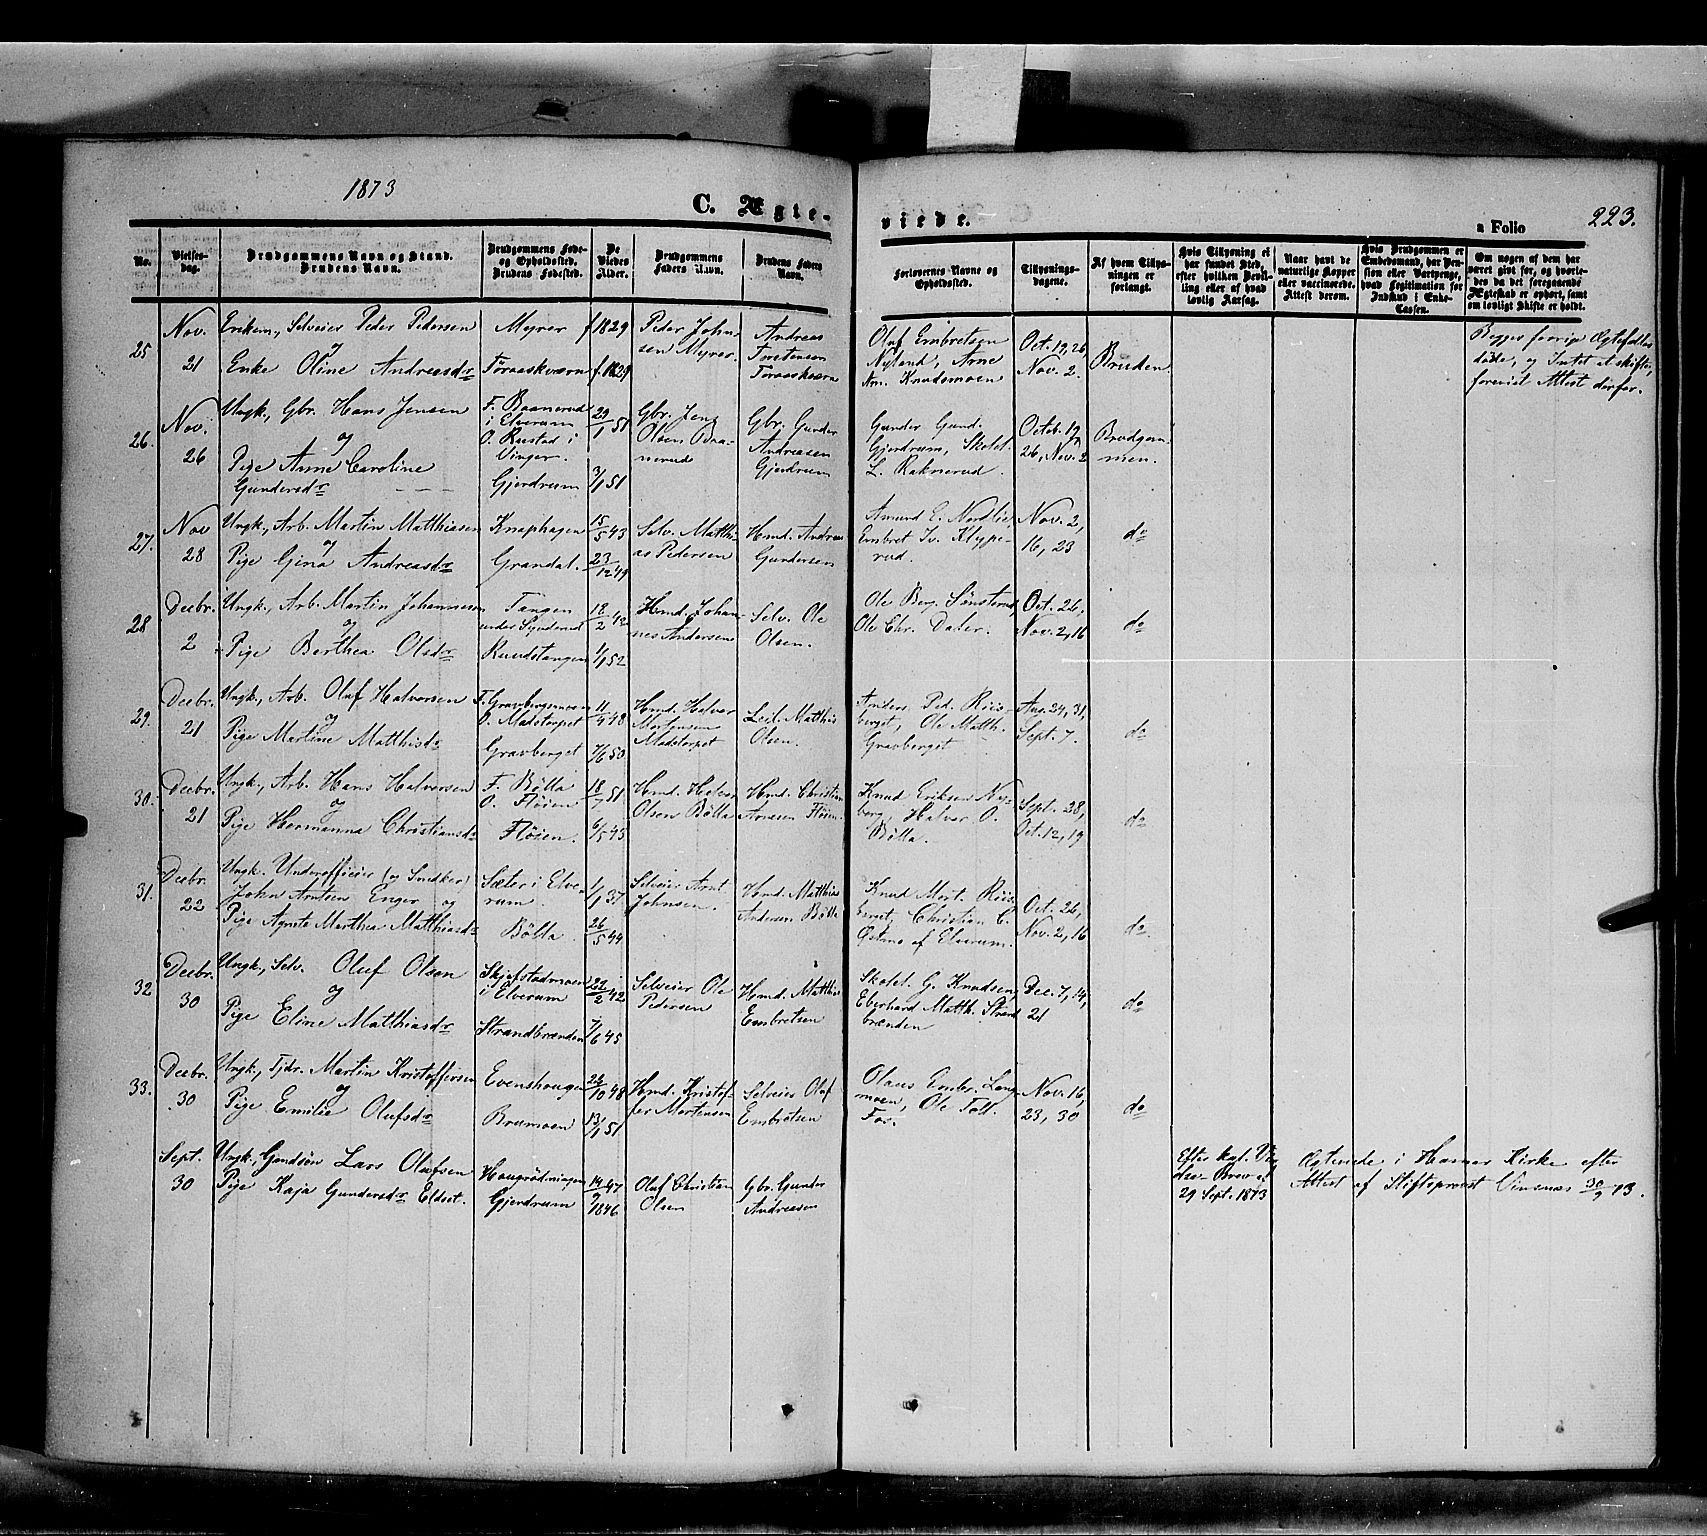 1873
C. Ægte-
viede.
a Folio
223.
No.
Vielses-
dag.
Brudgommens Navn og Stand.
Brudens Navn.
Brudgommens Føde-
og Opholdssted.
Brudens Fødested.
De
Viedes
Alder.
Brudgommens
Faders Navn.
Brudens Faders
Navn.
Forlovernes Navne og
Opholdssted.
Tillysnings-
dagene.
Af hvem Tillys-
ningen er
forlangt.
Hvis Tillysning ei
har fundet Sted,
efter hvilken Bevil-
ling eller af hvad
lovlig Aarsag.
Naar havt de
naturlige Kopper
eller vaccinerede.
Attest derom.
Hvis Brudgommen er
Embedsmand, har Pen-
sion eller Vartpenge,
hvad Legitimation for
Indskud i Enke-
Cassen.
Om nogen af dem har
været givt før, og hvorle-
des da det foregaaende
Ægteskab er ophørt, samt
om lovligt Skifte er holdt.
25
Nov.
21
Enkem, Selveier Peder Pedersen
og
Enke Oline Andreasdr
Myrer
Foraaskværn
f. 1829
f. 1829
Peder John-
sen Myrer
Andreas
Torstensen
Foraaskværn
Oluf Embretsen
Nyland, Arne
Arn. Knudsmoen
Oct. 19, 26,
Nov. 2
Bruden
Begges forrige Ægtefæller
døde, og Intet at skifte,
forevist Attest derfor.
26.
Nov.
26
Ungk., Gbr. Hans Jensen
og
Pige Anne Caroline
Gundersdr
F. Baanerud
i Elverum
O. Rustad i
Vinger.
Gjerdrum
29/1 51
3/1 51
Gbr. Jens
Olsen Baa-
nerud
Gbr. Gunder
Andreasen
Gjerdrum
Gunder Gund.
Gjerdrum, Skolel.
L. Raknerud.
Octob. 19,
26, Nov. 2
Brudgom-
men.
27.
Nov
28
Ungk., Arb. Martin Matthiasen
og
Pige Gina Andreasdr
Knaphagen
Grandal.
15/5 43
23/12 49
Selv. Matthi-
as Pedersen
Hmd. Andreas
Gundersen
Amund E. Nordlie,
Embret Iv. Klype-
rud.
Nov. 2,
16, 23
do
28
Decbr.
2
Ungk., Arb. Martin Johannesen
og
Pige Berthea Olsdr
Tangen
under Synderud
Knudstangen
18/2 42
1/1 52
Hmd. Johan-
nes Andersen
Selv. Ole
Olsen.
Ole Berg. Sønsterud,
Ole Chr. Daler.
Oct. 26,
Nov. 2, 16
do
29.
Decbr.
21
Ungk., Arb. Oluf Halvorsen
og
Pige Martine Matthisdr
F. Gravbergsmoen
O. Madstorpet
Gravberget
11/9 48
7/6 50
Hmd. Halvor
Mortensen
Madstorpet
Leil. Matthis
Olsen.
Anders Ped. Riis-
berget, Ole Matth.
Gravberget
Aug. 24, 31,
Sept. 7.
do
30.
Decbr.
21
Ungk., Arb. Hans Halvorsen
og
Pige Hermanna Christiansdr
F. Bølla
O. Fløsen
Fløsen.
18/7 51
6/5 45
Hmd. Halvor
Olsen Bølla
Hmd. Christian
Arnesen Fløsen.
Knud Eriksen Ny-
berg, Halvor O.
Bølla.
Sept. 28,
Oct. 12, 19
do
31.
Decbr.
22
Ungk. Underofficier (og Snedker)
John Arntsen Enger og
Pige Agnete Marthea Matthiasdr
Sæter i Elve-
rum.
Bølla
1/1 37
26/5 44
Selveier Arnt
Johnsen.
Hmd. Matthias
Andersen Bølla
Knud Mort. Riis-
berget, Christian C.
Østmo af Elverum.
Oct. 26,
Nov. 2, 16
do.
32
Decbr.
30
Ungk., Selv. Oluf Olsen
og
Pige Eline Matthiasdr
Skjefstadmoen
i Elverum
Strandbrænden
22/2 42
7/6 45
Selveier Ole
Pedersen
Hmd. Matthias
Embretsen
Skolel. G. Knudsen,
Eberhard Matth. Strand-
brænden
Dec. 7, 14,
21
do
33.
Decbr.
30
Ungk., Tjdr. Martin Kristoffersen
og
Pige Emilie Olufsdr
Evenshaugen
Brumoen
26/10 48
13/1 51
Hmd. Kristof-
fer Mortensen
Selveier Oluf
Embretsen
Olaus Embr. Lang-
moen, Ole Toll.
Fos.
Nov. 16,
23, 30
do
Sept.
30
Ungk., Gaardsøn Lars Olufsen
Pige Kaja Gundersdr Eldset.
Haugrødningen
Gjerdrum
14/9 47
1846
Oluf Christian
Olsen
Gbr. Gunder
Andreasen
Efter kgl. Vi-
else-Brev af
29 Sept. 1873
Ægteviede i Hamar Kirke efter
Attest af Stiftsprovst Vinsnes 30/9 73.